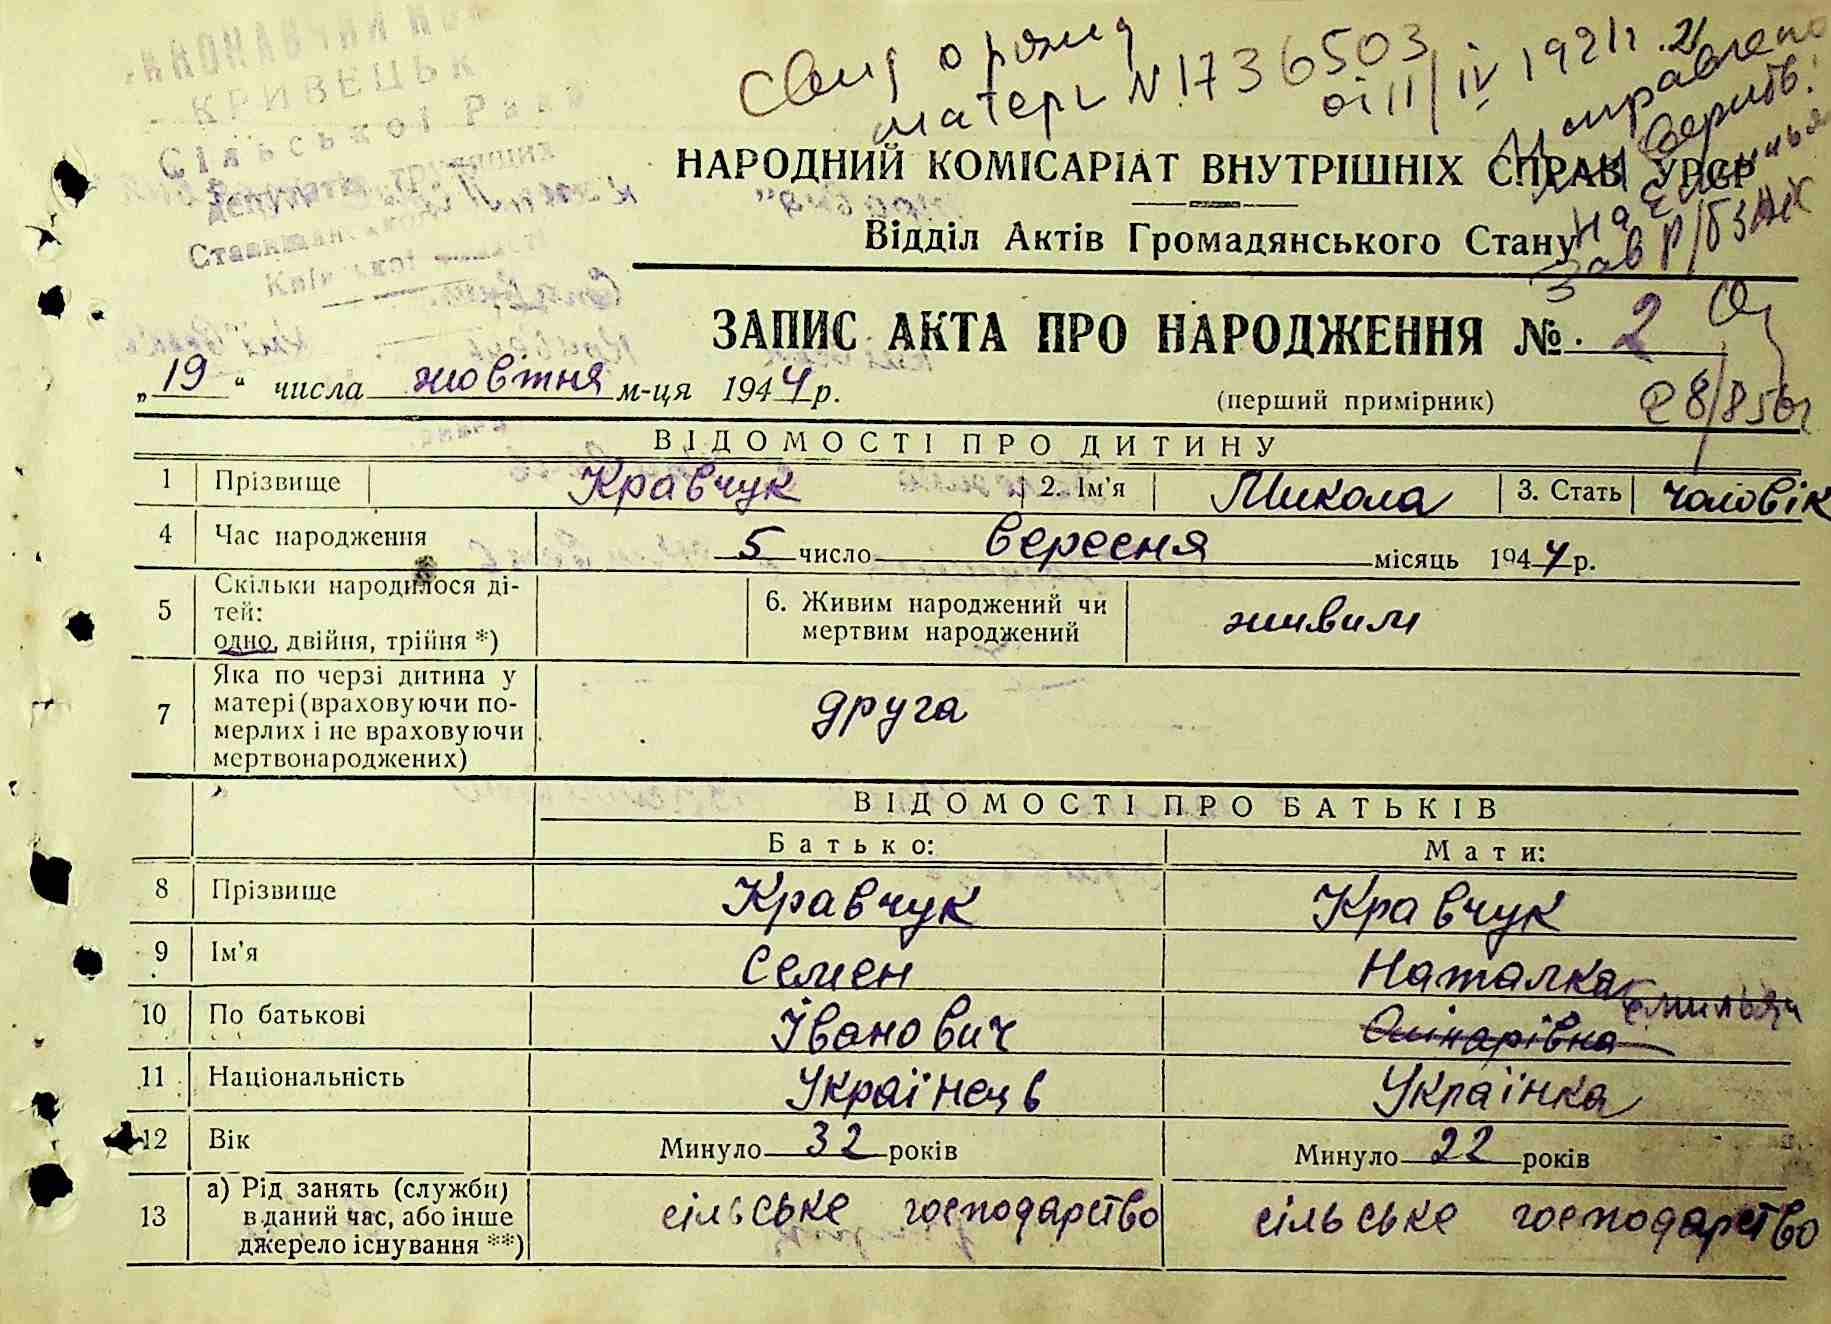 КРИВЕЦЬК
Сільської Ради
депутатів трудящих
Київської області
Свид о рожд
матери N 1736503
от 11/IV 1921г.
Исправлено
На
Зав Р/БЗАГС
28/8 56г
НАРОДНИЙ КОМІСАРІАТ ВНУТРІШНІХ СПРАВ УРСР
Відділ Актів Громадянського Стану
ЗАПИС АКТА ПРО НАРОДЖЕННЯ № 2
„19“ числа жовтня м-ця 1944 р.
(перший примірник)
ВІДОМОСТІ ПРО ДИТИНУ
1 Прізвище Кравчук 2. Ім'я Микола 3. Стать чоловік
4 Час народження 5 число вересня місяць 1944 р.
5 Скільки народилося ді-
тей:
одно, двійня, трійня *)
6. Живим народжений чи
мертвим народжений
живим
7 Яка по черзі дитина у
матері (враховуючи по-
мерлих і не враховуючи
мертвонароджених)
друга
ВІДОМОСТІ ПРО БАТЬКІВ
Батько: Мати:
8 Прізвище Кравчук Кравчук
9 Ім'я Семен Наталка
10 По батькові Іванович
11 Національність Українець Українка
12 Вік Минуло 32 років Минуло 22 років
13 а) Рід занять (служби)
в даний час, або інше
джерело існування **)
сільське господарство сільське господарство